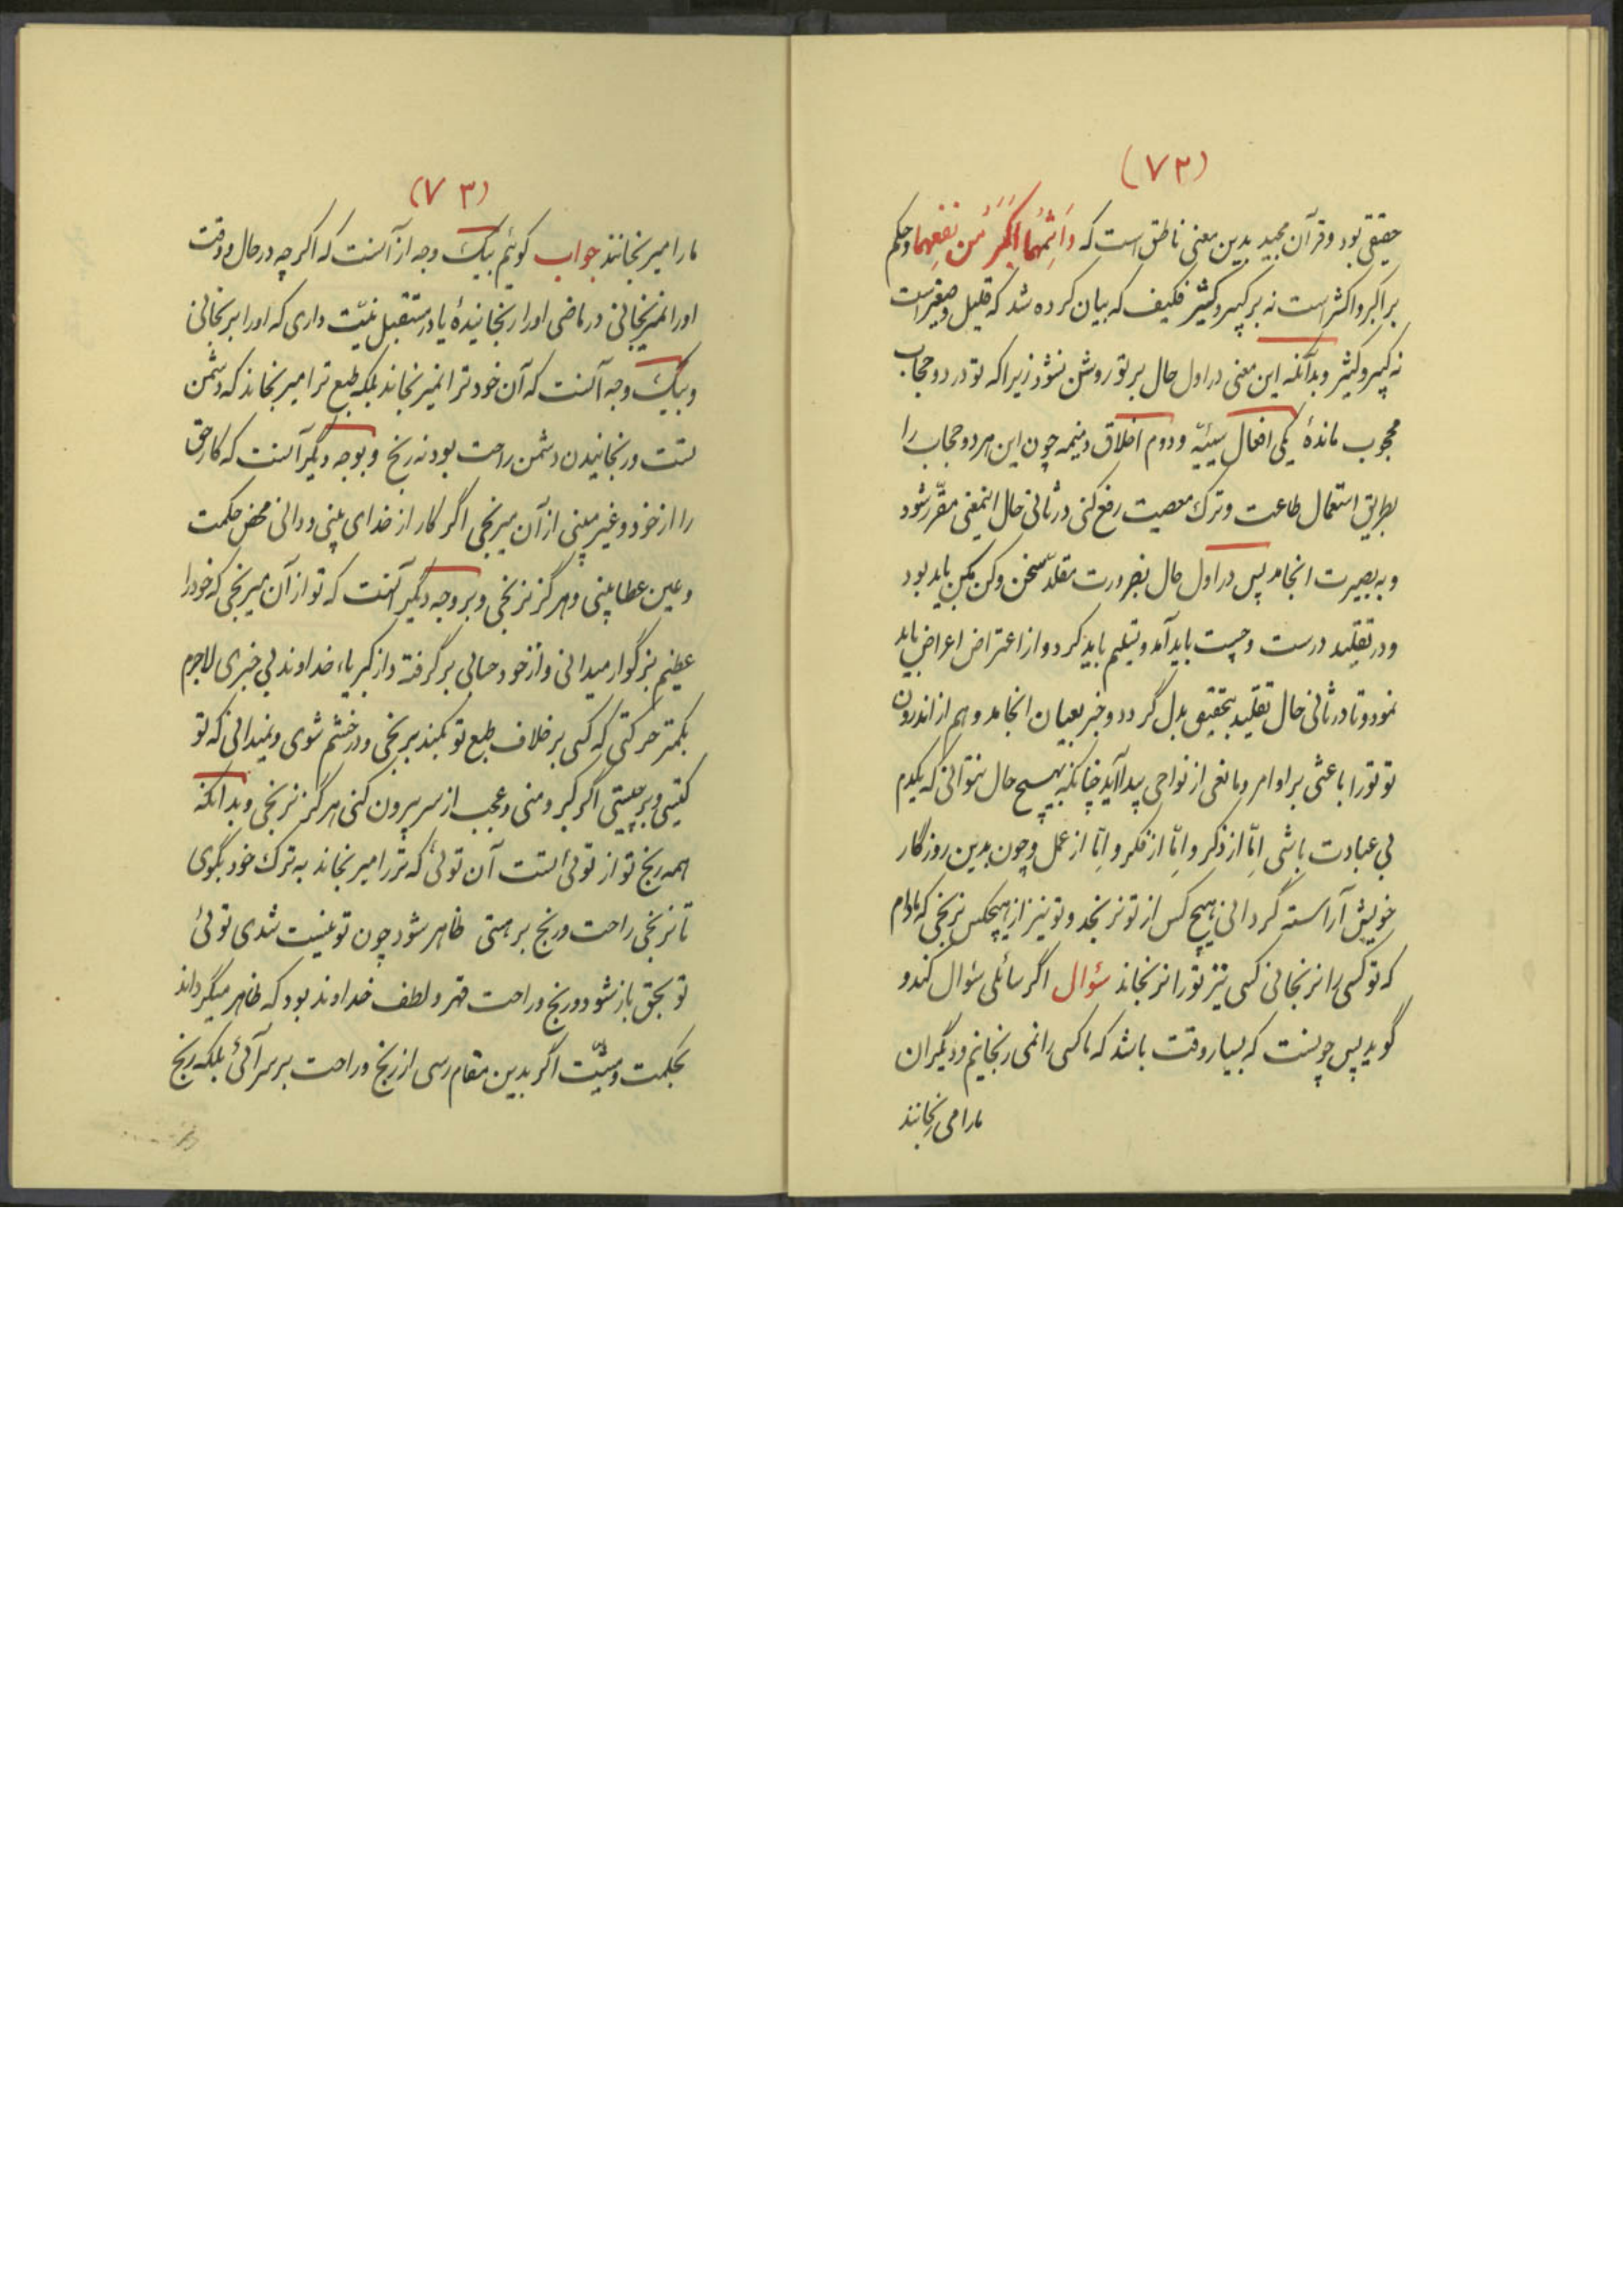 (۷۲)
حقیقی بود و قرآن مجید بدین معنی ناطق است که وَاِثمُهُما اَکبَرُ مِن نَفعِهِما و حکم
بر اکبر و اکثر است نه بر کبیر و کثیر فکیف که بیان کرده شد که قلیل و صغیر است
نه کبیر و کثیر و بدآنکه این معنی در اول حال بر تو روشن نشود زیرا که تو در دو حجاب
محجوب ماندهٔ یکی افعال سیئیّه و دوم اخلاق ذمیمه چون این هر دو حجاب را
بطریق استعمال طاعت و ترک معصیت رفع کنی در ثانی حال اینمعنی مقرّر شود
و به بصیرت انجامد پس در اول حال بضرورت مقلّد سخن و کن مکن باید بود
و در تقلید درست و چست باید آمد و تسلیم باید کرد و از اعتراض اعراض باید
نمود و تا در ثانی حال تقلید بتحقیق بدل گردد و خبر بعیان انجامد و هم از اندرون
تو تو را باعثی بر اوامر و مانعی از نواحی پیدا آید چنانکه بهیچ حال نتوانی که یکدم
بی عبادت باشی اِمّا از ذکر و اِمّا از فکر و اِمّا از عمل و چون بدین روزگار
خویش آراسته گردانی هیچ کس از تو نرنجد و تو نیز از هیچکس نرنجی که مادام
که تو کسی را نرنجانی کسی نیز تو را نرنجاند سؤال اگر سائلی سؤال کند و
گوید پس چونست که بسیار وقت باشد که ما کسی را نمی رنجانیم و دیگران
ما را می رنجانند
(۷۳)
ما را میرنجانند جواب کوئیم بیک وجه از آنست که اکر چه در حال و وقت
او را نمیرنجانی در ماضی او را رنجانیدهٔ یا در مستقبل نیّت داری که او را برنجانی
و بیک وجه آنست که آن خود ترا نمیرنجاند بلکه طبع ترا میرنجاند که دشمن
تست و رنجانیدن دشمن راحت بود نه رنج و بوجه دیگر آنست که کار حق
را از خود و غیر میبینی از آن میرنجی اگر کار از خدای بینی و دانی محض حکمت
و عین عطا بینی و هرگز نرنجی و بر وجه دیگر آنست که تو از آن میرنجی که خود را
عظیم بزرگوار میدانی و از خود حسابی بر گرفته و از کبریاء خداوند بی خبری لاجرم
بکمتر حرکتی که کسی بر خلاف طبع تو بکند برنجی و در خشم شوی و نمیدانی که تو
کیستی و بر چیستی اگر کبر و منی و عجب از سر بیرون کنی هرگز نرنجی و بدانکه
همه رنج تو از توئی تست آن توئی که ترا میرنجاند به ترک خود بگوی
تا نرنجی راحت و رنج بر هستی ظاهر شود چون تو نیست شدی توئی
تو بحق باز شود و رنج و راحت قهر و لطف خداوند بود که ظاهر میگرداند
بحکمت و مشیّت اگر بدین مقام رسی از رنج و راحت بر سر آئی بلکه رنج